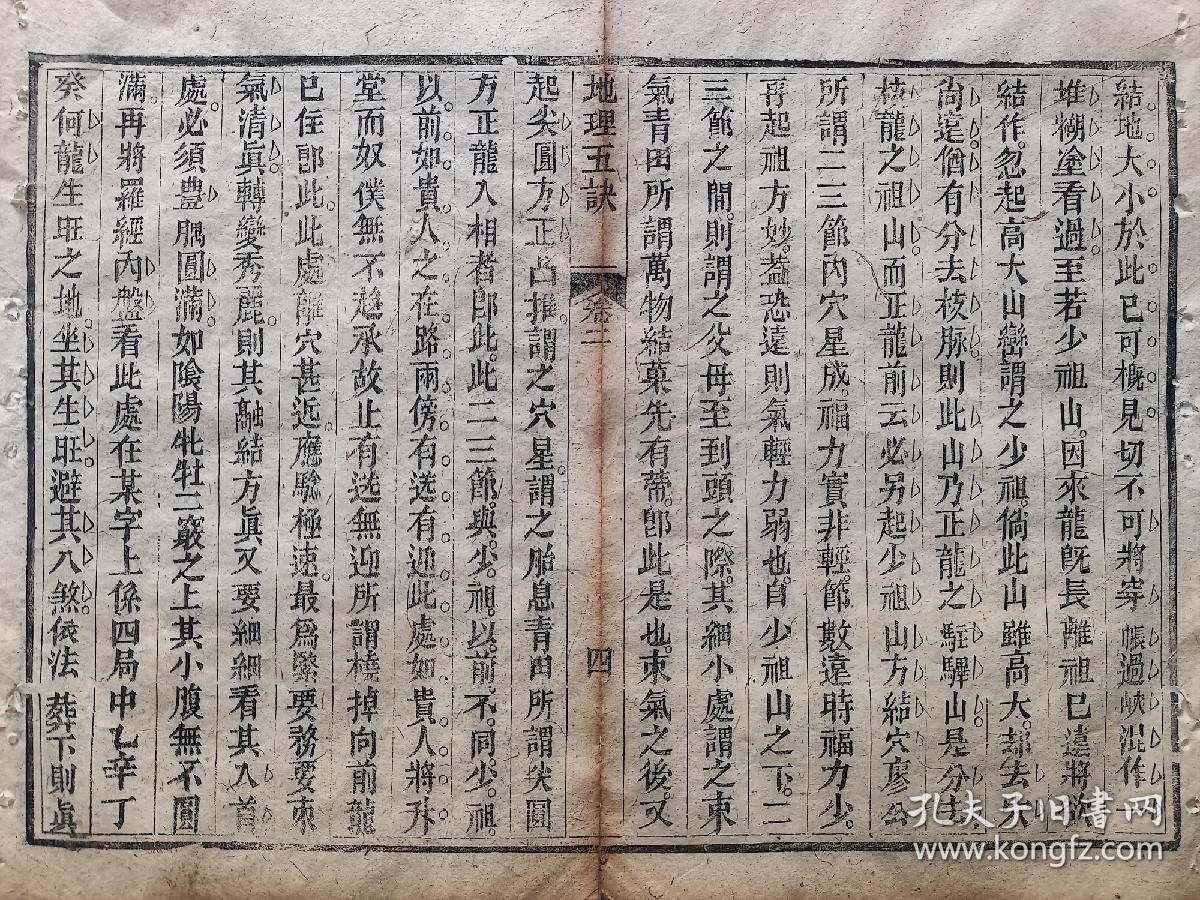 結地大小於此已可概見切不可將穿帳過峽混作
堆糊塗看過至若少祖山因來龍旣長離祖已遠將
結作忽起高大山巒謂之少祖倘此山雖高大却去
尙遠猶有分去枝脉則此山乃正龍之駐驆山是分去
枝龍之祖山而正龍前云必另起少祖山方結穴廖公
所謂二三節內穴星成福力實非輕節數遠時福力少
再起祖方妙葢恐遠則氣輕力弱也自少祖山之下二
三節之間則謂之父母至到頭之際其細小處謂之束
氣靑田所謂萬物結菓先有蒂卽此是也束氣之後又
地理五訣 卷二 四
起尖圓方正凸推謂之穴星謂之胎息靑田所謂尖圓
方正龍入相者卽此此二三節與少祖以前不同少祖
以前如貴人之在路兩傍有送有迎此處如貴人將升
堂而奴僕無不趋承故止有送無迎所謂橈掉向前龍
已住卽此此處離穴甚近應騐極速最爲緊要務要束
氣淸眞轉變秀麗則其融結方眞又要細細看其入首
處必須豊腸圓滿如陰陽牝牡二竅之上其小腹無不圓
滿再將羅經內盤看此處在某字上係四局中乙辛丁
癸何龍生旺之地坐其生旺避其八煞依法葬下則眞
孔夫子旧書网
www.kongfz.com